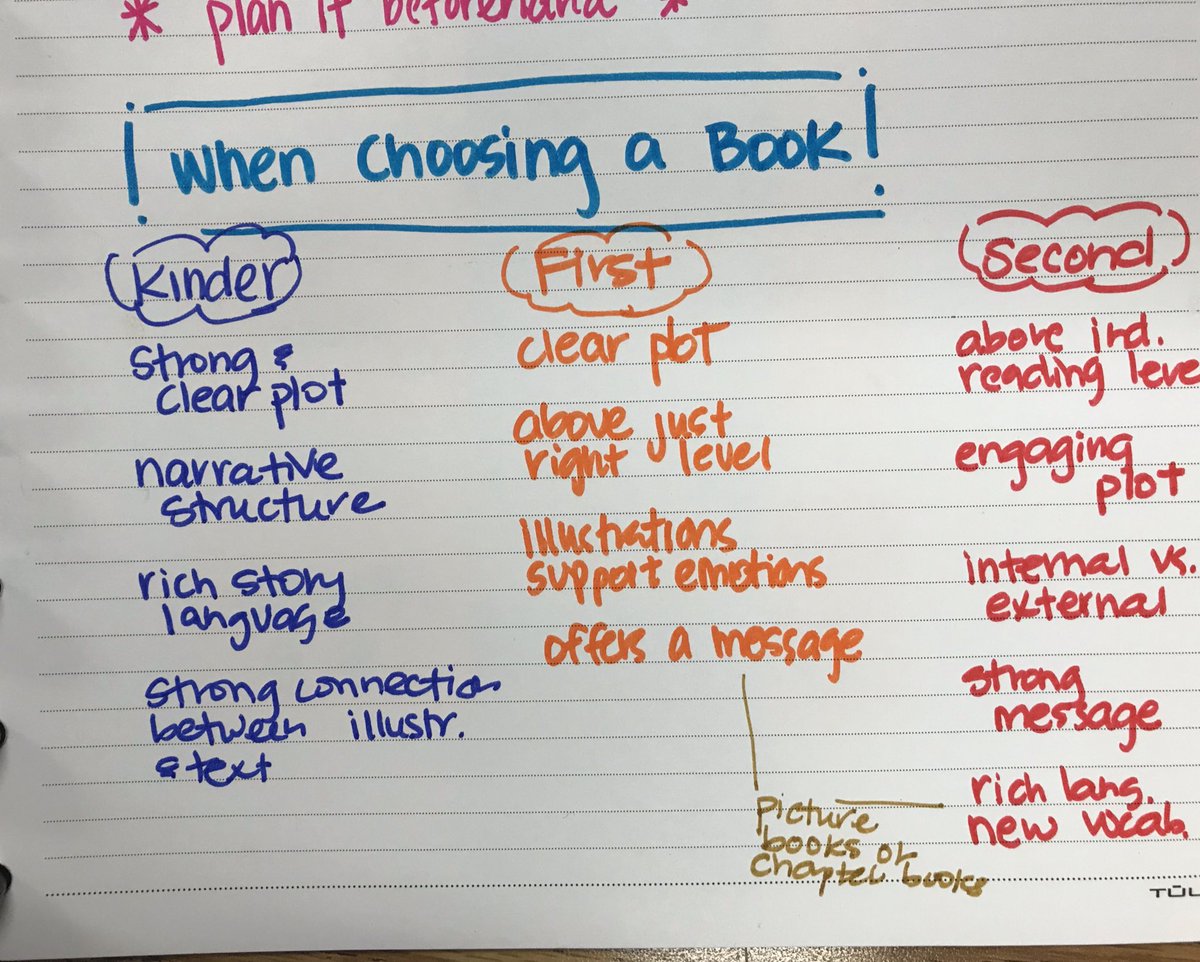 * plan it beforehand *
When Choosing a Book
Kinder
strong &
clear plot
narrative
structure
rich story
language
strong connection
between illustr.
& text
First
clear plot
above just
right level
illustrations
support emotions
offers a message
picture
books or
chapter books
Second
above ind.
reading leve
engaging
plot
internal vs.
external
strong
message
rich lang.
new vocab.
TŪL